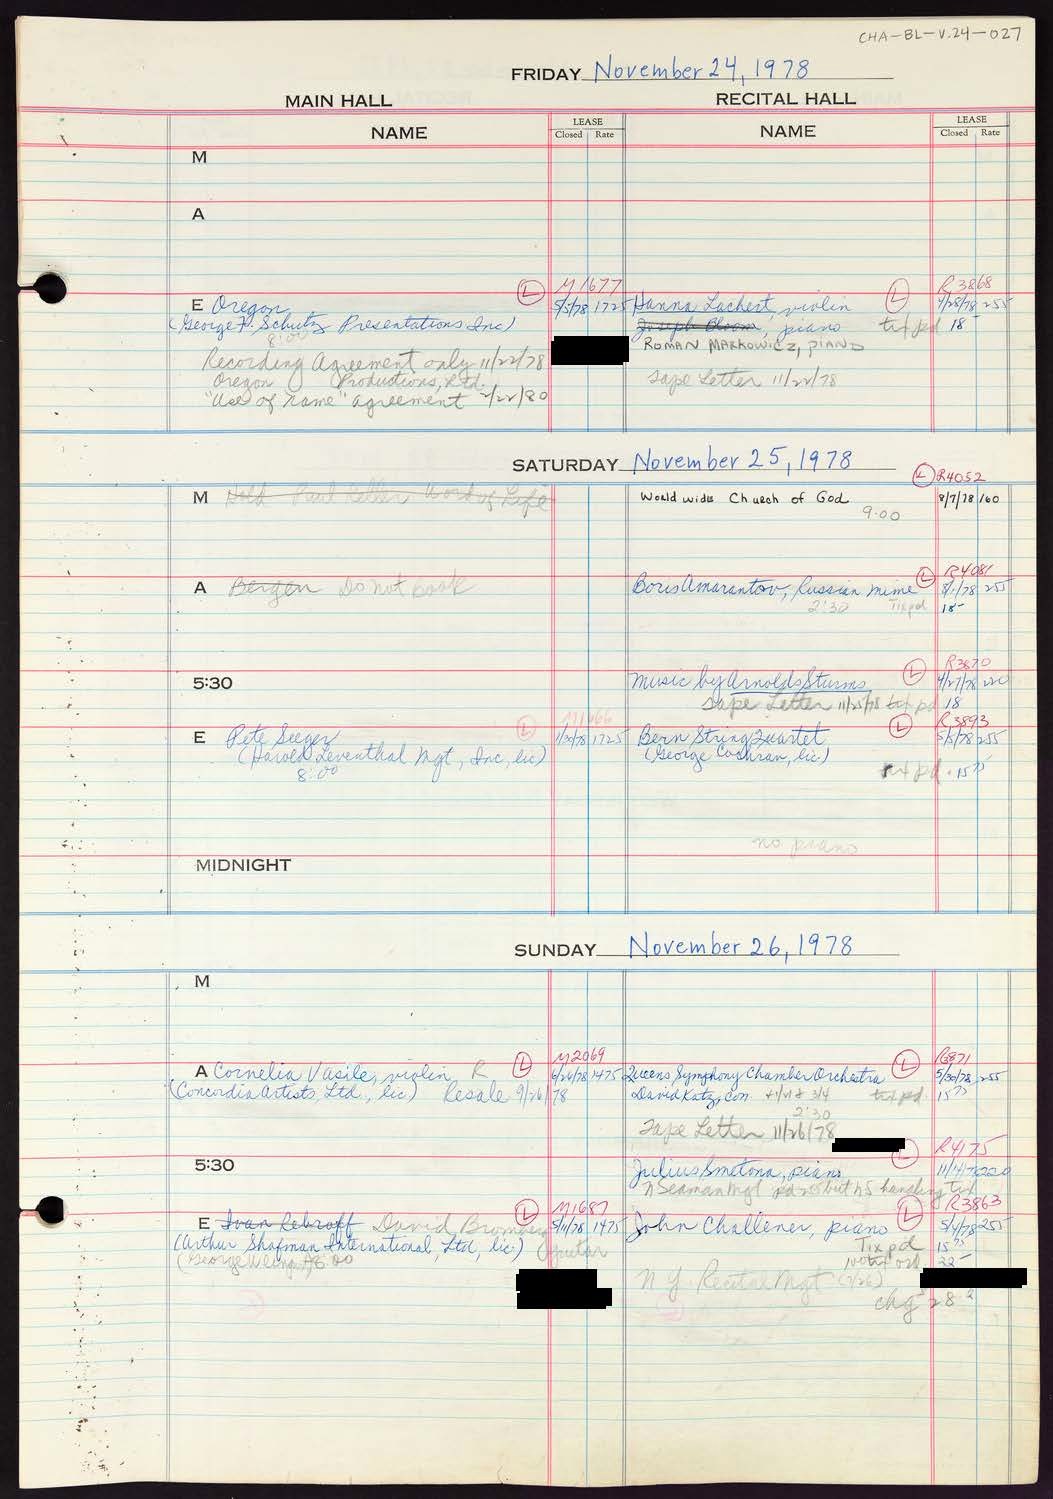 CHA-BL-V.24-027
FRIDAY November 24, 1978
MAIN HALL
RECITAL HALL
NAME
LEASE
Closed Rate
NAME
LEASE
Closed Rate
M
A
E Oregon
L
M1677
5/5/78 1725
(George F. Schutz Presentations Inc)
8:00
Recording Agreement only 11/22/78
Oregon Productions, Ltd.
"Use of Name" agreement 2/22/80
L
R3868
Hanna Lachert, violin
4/28/78 255
Joseph Bloom, piano tix pd 18-
ROMAN MARKOWICZ, PIANO
Tape Letter 11/22/78
SATURDAY November 25, 1978
M Hold Paul Keller Word of Life
L R4052
World wide Church of God 8/7/78 160
9:00
A Bergen Do not book
L R4081
Boris Amarantov, Russian mime 8/1/78 255
2:30 Tix pd 18-
5:30
L R3870
Music by Arnolds Sturms 4/27/78 220
Tape Letter 11/25/78 tix pd 18
E Pete Seeger
L M1466
1/30/78 1725
(Harold Leventhal Mgt, Inc, lic)
8:00
L R3893
Bern String Quartet 5/5/78 255
(George Cochran, lic.)
tix pd. 15 75
no piano
MIDNIGHT
SUNDAY November 26, 1978
M
A Cornelia Vasile, violin R
L M2069
6/26/78 1475
(Concordia Artists Ltd., lic) Resale 9/26/78
L R3871
Queens Symphony Chamber Orchestra 5/30/78 255
David Katz, con. tix pd. 15 75
2:30
Tape Letter 11/26/78
5:30
L R4175
Julius Smetona, piano 220
N Seaman Mgt but NS handling tix
E Ivan Rebroff David Bromberg
L M1687
5/11/78 1475
guitar
(Arthur Shafman International, Ltd, lic.)
8:00
L R3863
John Challener, piano 5/4/78 255
Tix pd 15 75
22-
N Y Recital Mgt (7/26)
chg 28